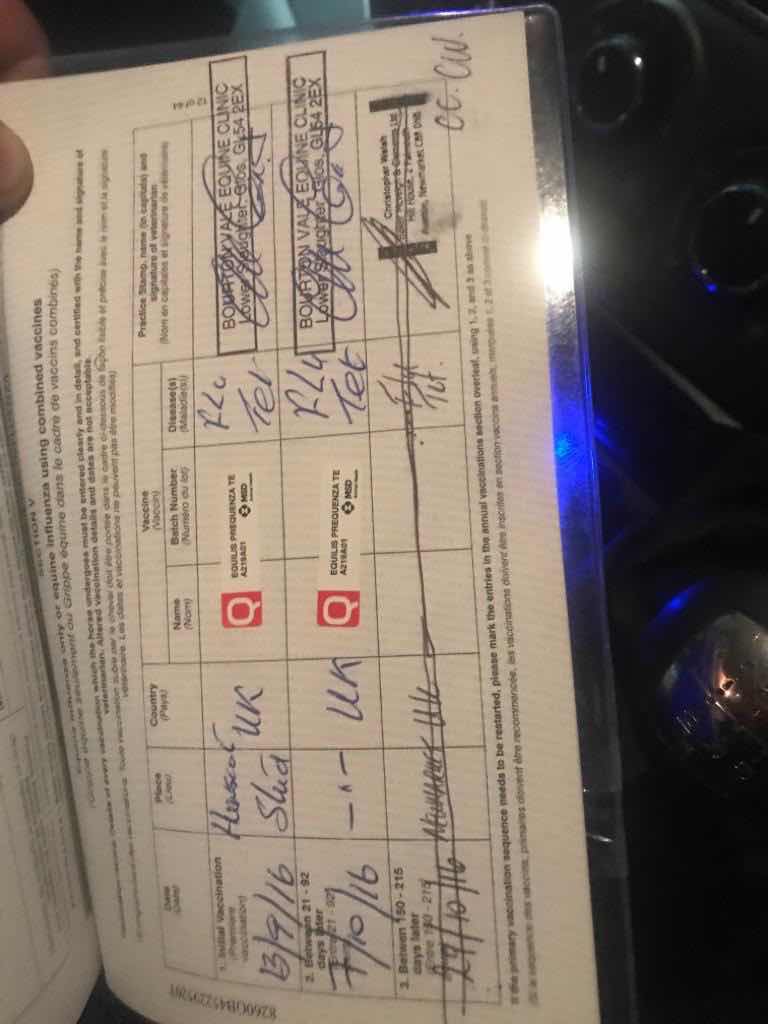 SECTION V
Equine influenza only or equine influenza using combined vaccines
(Grippe équine seulement ou Grippe équine dans le cadre de vaccins combinés)
Details of every vaccination which the horse undergoes must be entered clearly and in detail, and certified with the name and signature of
veterinarian. Altered vaccination details and dates are not acceptable.
Toute vaccination subie par le cheval doit être portée dans le cadre ci-dessous de façon lisible et précise avec le nom et la signature
vétérinaire. Les dates et vaccinations ne peuvent pas être modifiées)
12 of 64
Date
(Date)
Place
(Lieu)
Country
(Pays)
Vaccine
(Vaccin)
Name
(Nom)
Batch Number
(Numéro du lot)
Disease(s)
(Maladie(s))
Practice Stamp, name (in capitals) and
signature of veterinarian
(Nom en capitales et signature de vétérinaire)
1. Initial Vaccination
(Première
vaccination)
13/9/16
Stud
UK
Q
EQUILIS PREQUENZA TE
A219A01
MSD
FLU
Tet
BOURTON VALE EQUINE CLINIC
Lower Slaughter. Glos. GL54 2EX
2. Between 21 - 92
days later
7/10/16
- " -
UK
Q
EQUILIS PREQUENZA TE
A219A01
MSD
FLU
Tet
BOURTON VALE EQUINE CLINIC
Lower Slaughter. Glos. GL54 2EX
3. Between 150 - 215
days later
(Entre 150 - 215)
27/10/16
Newmarket UK
Flu
Tet.
Christopher Walsh
Hill House, 2
Avenue, Newmarket, CB8
CW.
If the primary vaccination sequence needs to be restarted, please mark the entries in the annual vaccinations section overleaf, using 1, 2, and 3 as above